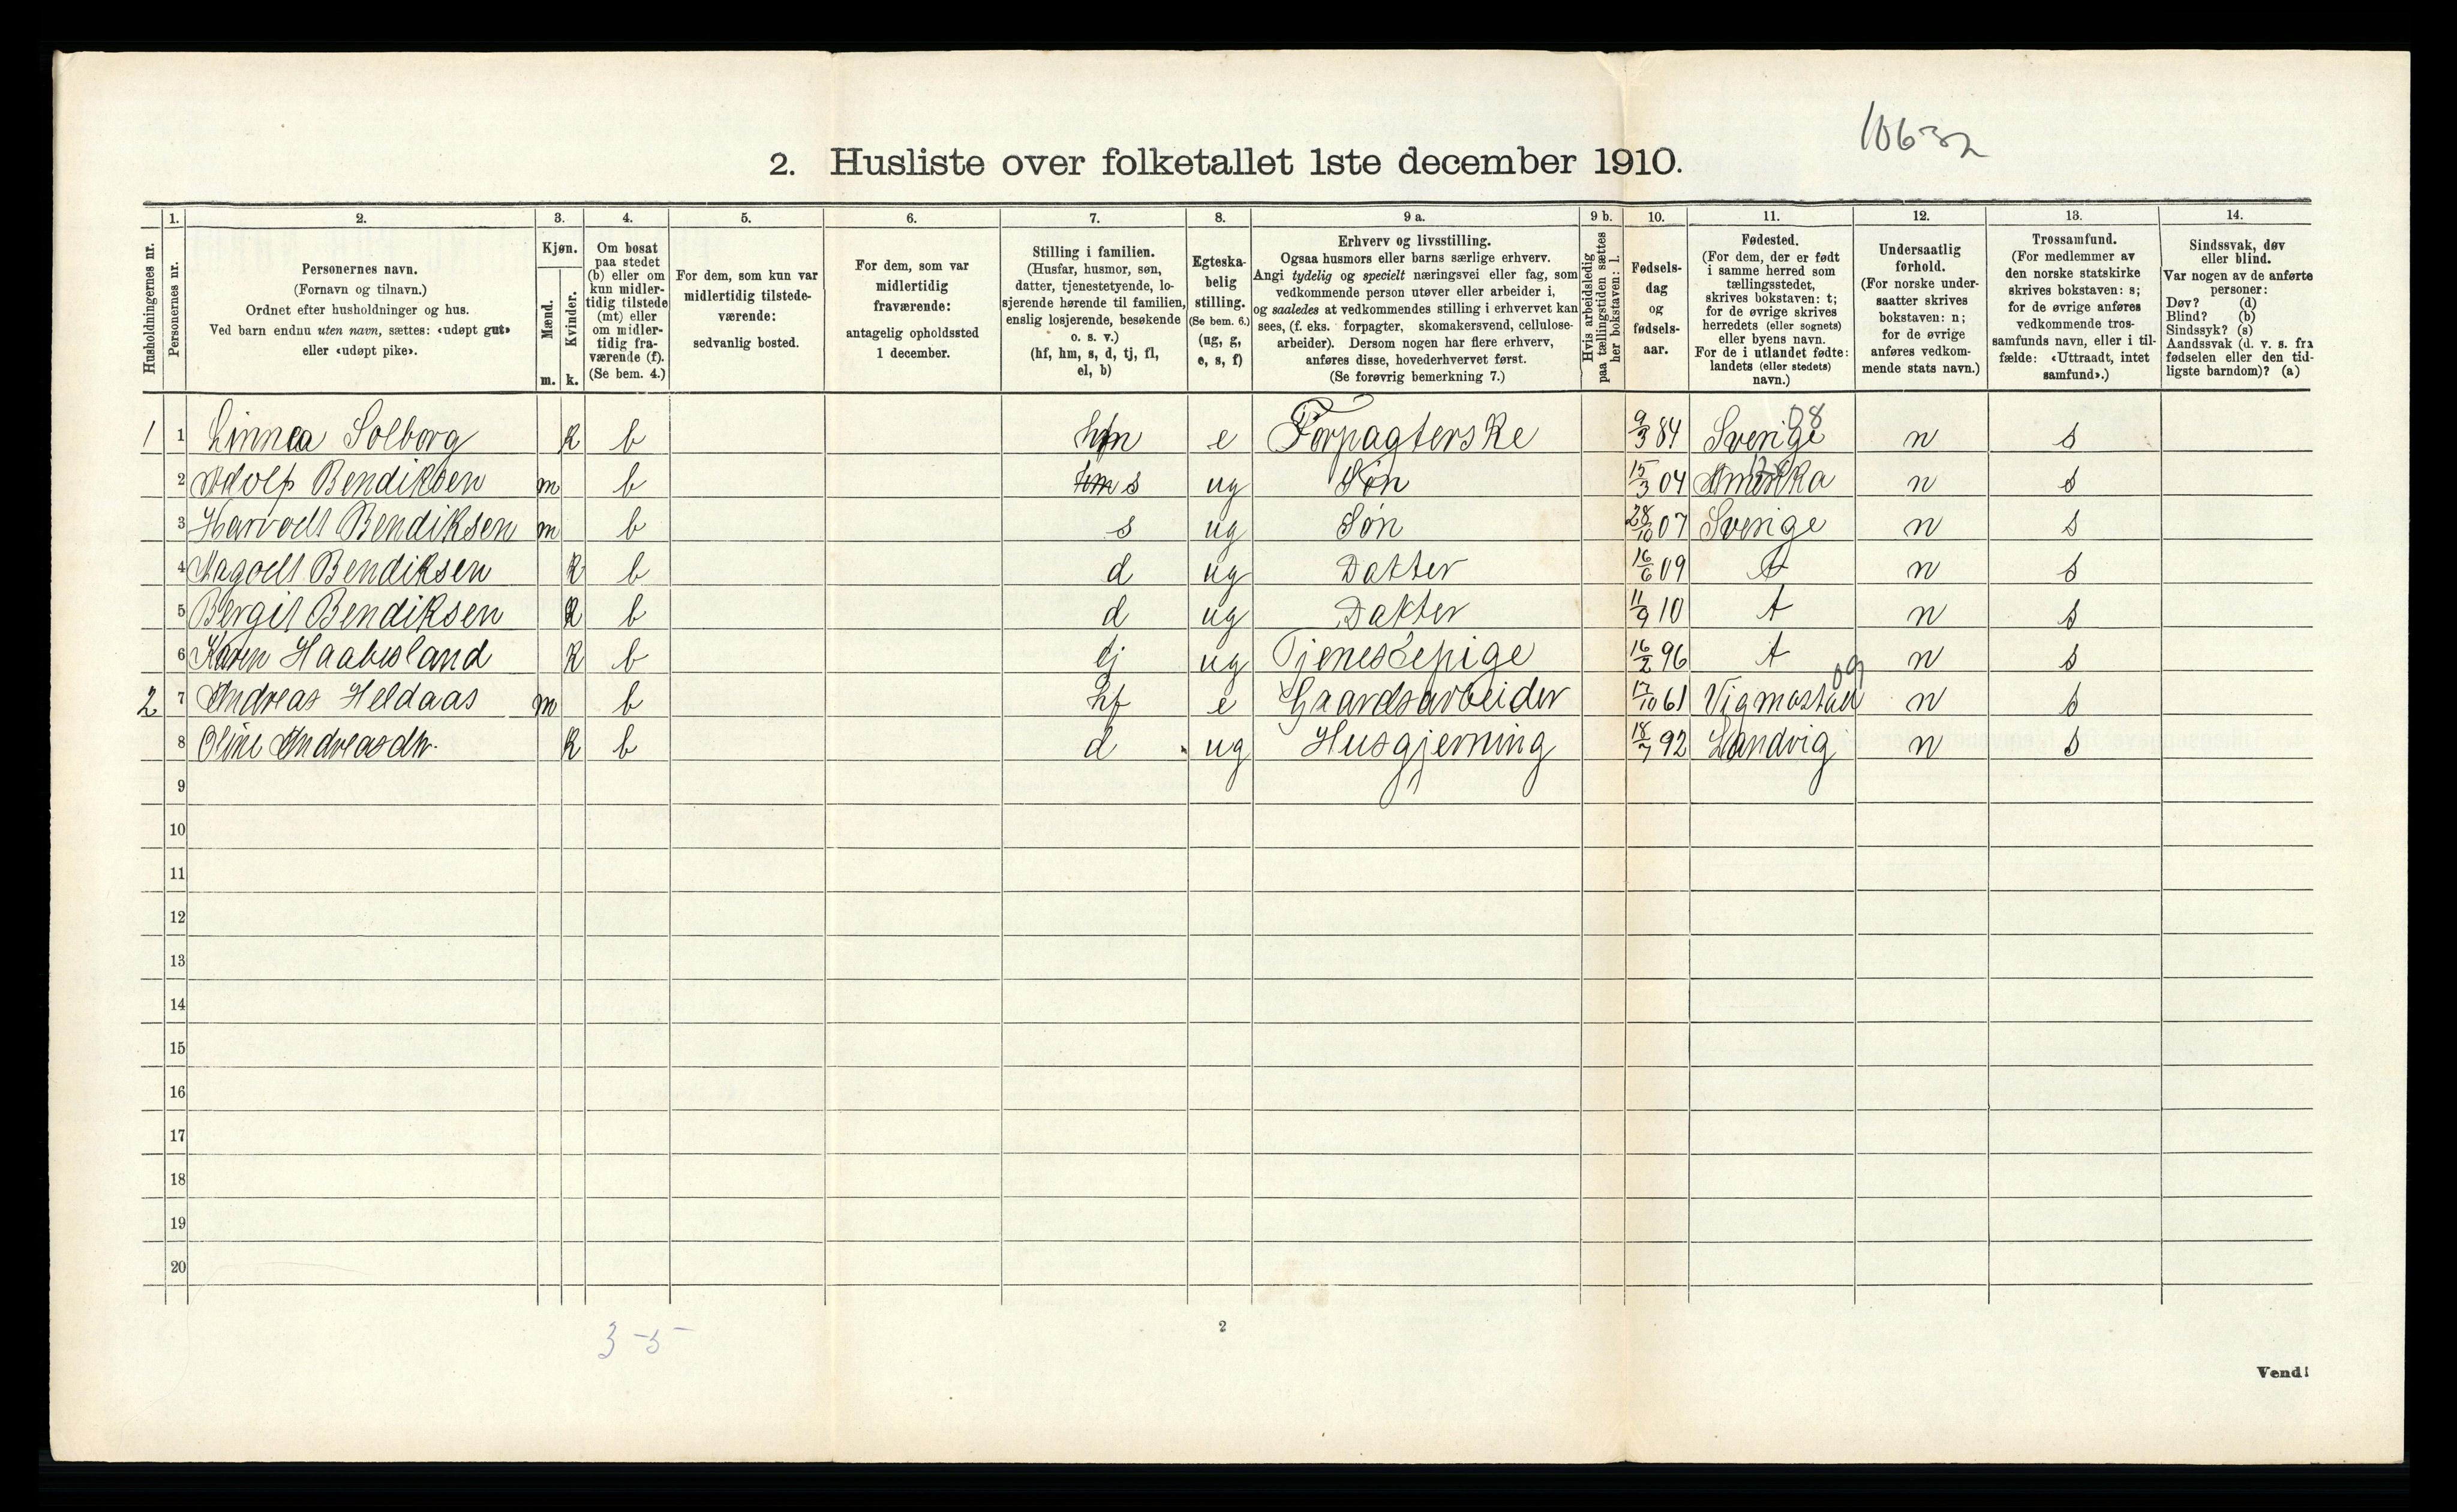 10632
2. Husliste over folketallet 1ste december 1910.
1. 2. 3. 4. 5. 6. 7. 8. 9 a. 9 b. 10. 11. 12. 13. 14.
Husholdningernes nr.
Personernes nr.
Personernes navn.
(Fornavn og tilnavn.)
Ordnet efter husholdninger og hus.
Ved barn endnu uten navn, sættes: «udøpt gut»
eller «udøpt pike».
Kjøn.
Mænd.
Kvinder.
m. k.
Om bosat
paa stedet
(b) eller om
kun midler-
tidig tilstede
(mt) eller
om midler-
tidig fra-
værende (f).
(Se bem. 4.)
For dem, som kun var
midlertidig tilstede-
værende:
sedvanlig bosted.
For dem, som var
midlertidig
fraværende:
antagelig opholdssted
1 december.
Stilling i familien.
(Husfar, husmor, søn,
datter, tjenestetyende, lo-
sjerende hørende til familien,
enslig losjerende, besøkende
o. s. v.)
(hf, hm, s, d, tj, fl,
el, b)
Egteska-
belig
stilling.
(Se bem. 6.)
(ug, g,
e, s, f)
Erhverv og livsstilling.
Ogsaa husmors eller barns særlige erhverv.
Angi tydelig og specielt næringsvei eller fag, som
vedkommende person utøver eller arbeider i,
og saaledes at vedkommendes stilling i erhvervet kan
sees, (f. eks. forpagter, skomakersvend, cellulose-
arbeider). Dersom nogen har flere erhverv,
anføres disse, hovederhvervet først.
(Se forøvrig bemerkning 7.)
Hvis arbeidsledig
paa tællingstiden sættes
her bokstaven: l.
Fødsels-
dag
og
fødsels-
aar.
Fødested.
(For dem, der er født
i samme herred som
tællingsstedet,
skrives bokstaven: t;
for de øvrige skrives
herredets (eller sognets)
eller byens navn.
For de i utlandet fødte:
landets (eller stedets)
navn.)
Undersaatlig
forhold.
(For norske under-
saatter skrives
bokstaven: n;
for de øvrige
anføres vedkom-
mende stats navn.)
Trossamfund.
(For medlemmer av
den norske statskirke
skrives bokstaven: s;
for de øvrige anføres
vedkommende tros-
samfunds navn, eller i til-
fælde: «Uttraadt, intet
samfund».)
Sindssvak, døv
eller blind.
Var nogen av de anførte
personer:
Døv? (d)
Blind? (b)
Sindssyk? (s)
Aandssvak (d. v. s. fra
fødselen eller den tid-
ligste barndom)? (a)
1 1 Linnea Solborg k b hm e Forpagterske 9/3 84 Sverige 08 n s
2 Adolf Bendiksen m b hm s ug Søn 15/3 04 Amerika n s
3 Harvodt Bendiksen m b s ug Søn 28/10 07 Sverige n s
4 Magodt Bendiksen k b d ug Datter 16/6 09 t n s
5 Bergit Bendiksen k b d ug Dakter 11/9 10 t n s
6 Karen Haabesland k b tj ug Tjenestepige 16/2 96 t n s
2 7 Andreas Heldaas m b hf e Gaardsarbeider 17/10 61 Vigmostad 09 n s
8 Oline Andreasdtr. k b d ug Husgjerning 18/7 92 Landvig n s
9
10
11
12
13
14
15
16
17
18
19
20
3-5
2
Vend!